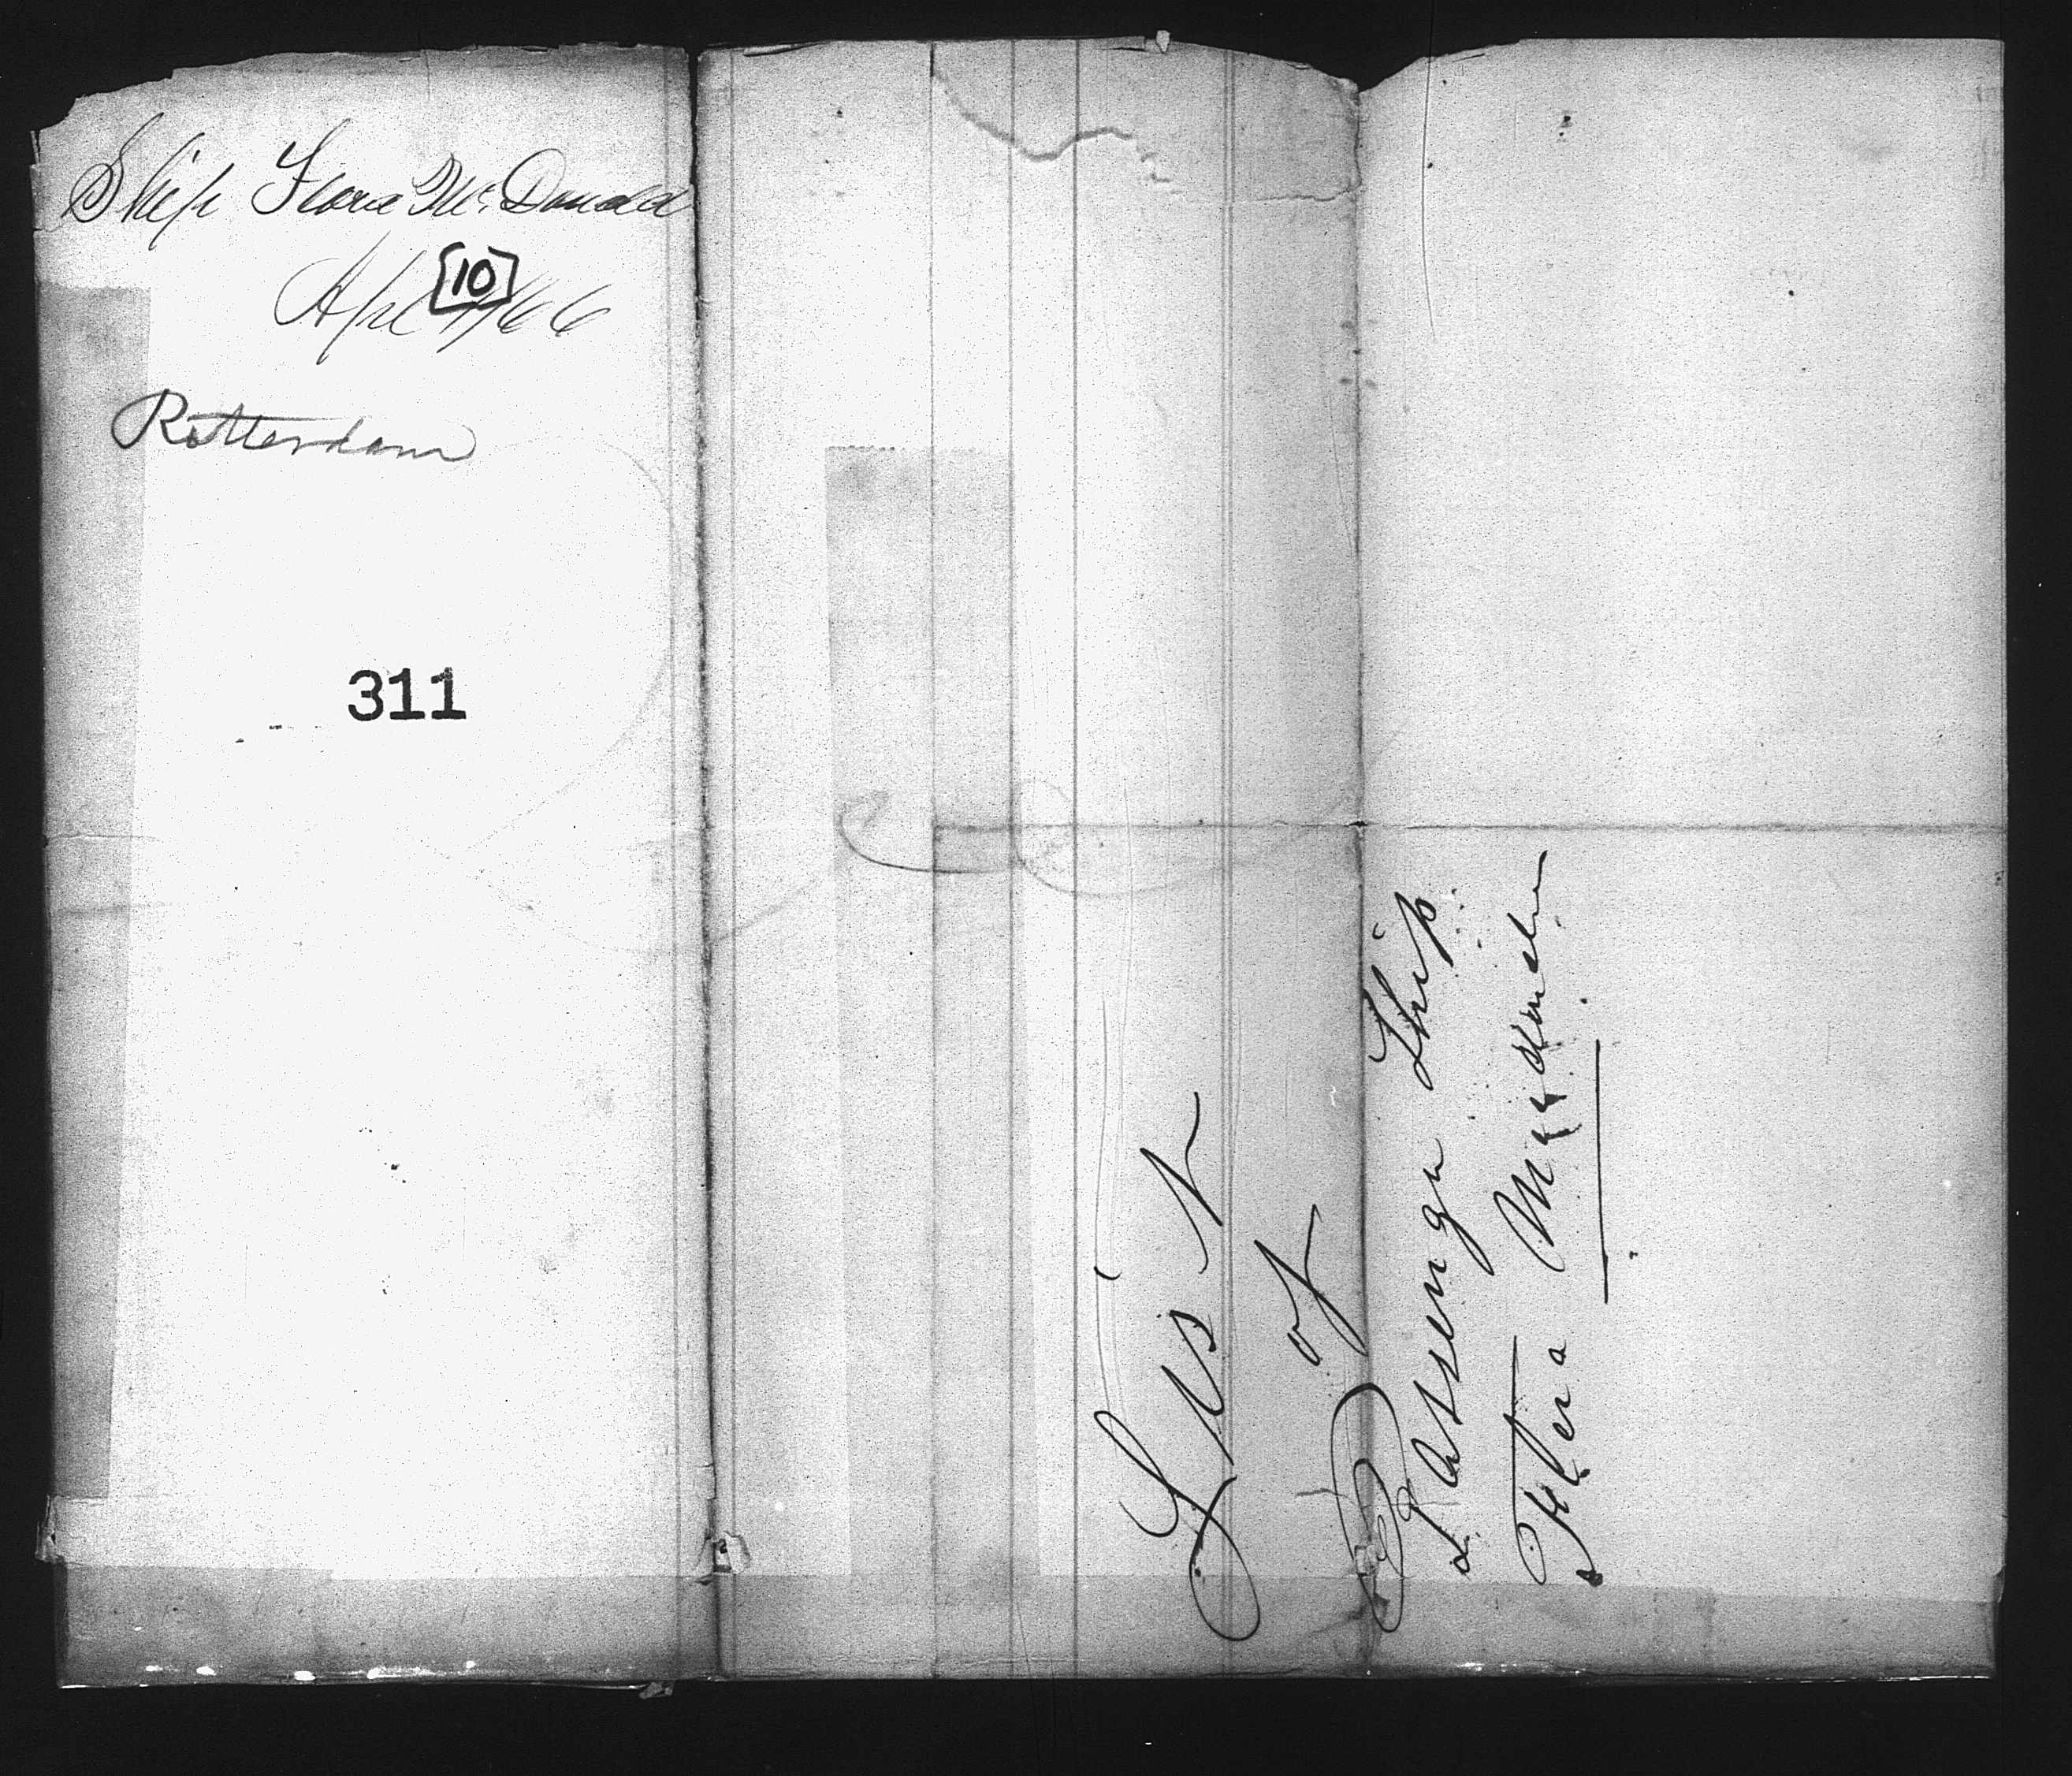 Ship Flora McDonald
[10]
Apl /66
Rotterdam
311
List
of
Passenger Ship
Flora